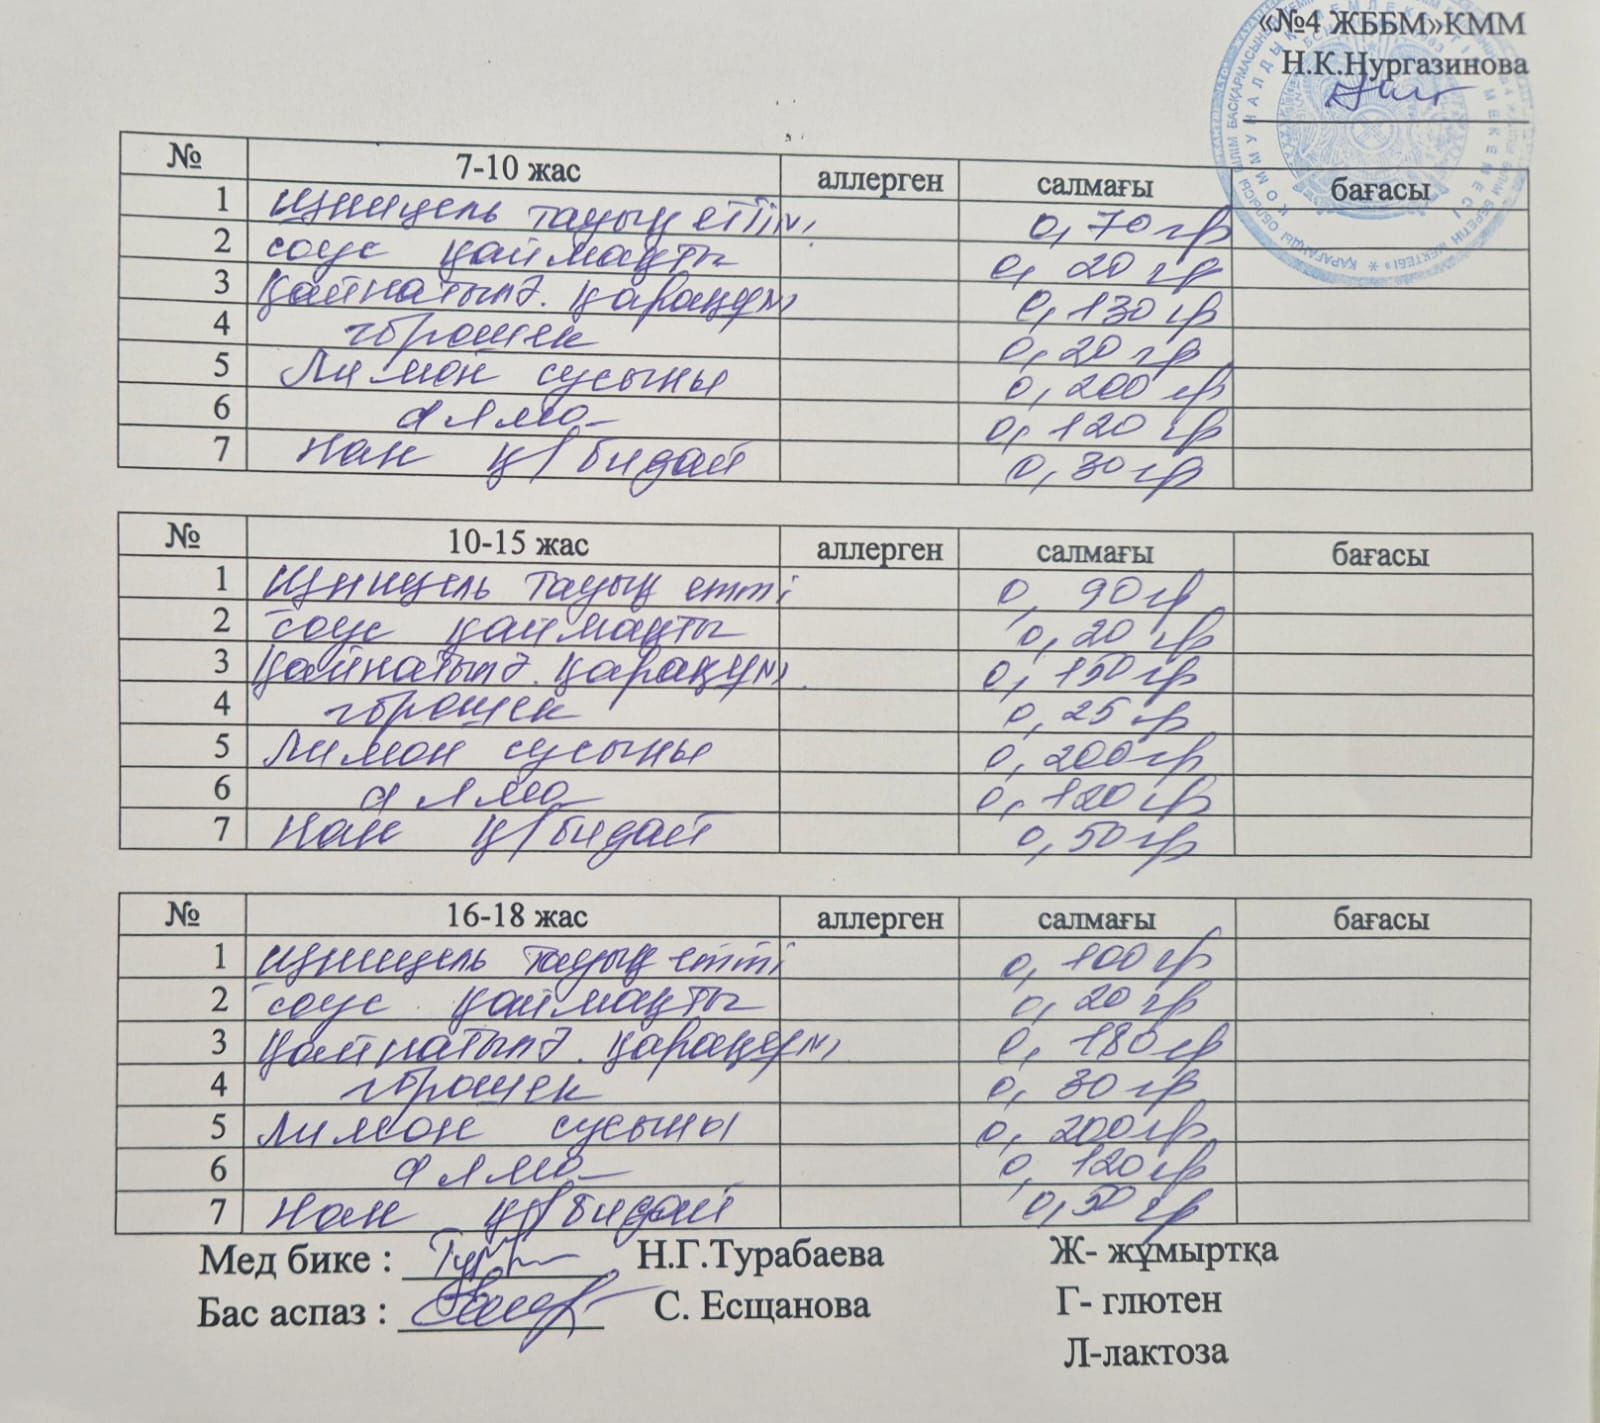 «№4 ЖББМ»КММ
Н.К.Нургазинова
№ 7-10 жас аллерген салмағы бағасы
1 Шницель тауық етті 0,70 гр
2 соус қаймақты 0,20 гр
3 Қайнатылғ. қарақұм 0,130 гр
4 горошек 0,20 гр
5 Лимон сусыны 0,200 гр
6 алма 0,120 гр
7 Нан қ/бидай 0,30 гр
№ 10-15 жас аллерген салмағы бағасы
1 Шницель тауық етті 0,90 гр
2 соус қаймақты 0,20 гр
3 Қайнатылғ. қарақұм 0,150 гр
4 горошек 0,25 гр
5 Лимон сусыны 0,200 гр
6 алма 0,120 гр
7 Нан қ/бидай 0,50 гр
№ 16-18 жас аллерген салмағы бағасы
1 Шницель тауық етті 0,100 гр
2 соус қаймақты 0,20 гр
3 Қайнатылғ. қарақұм 0,180 гр
4 горошек 0,30 гр
5 Лимон сусыны 0,200 гр
6 алма 0,120 гр
7 Нан қ/бидай 0,50 гр
Мед бике : Н.Г.Турабаева Ж- жұмыртқа
Бас аспаз : С. Есщанова Г- глютен
Л-лактоза